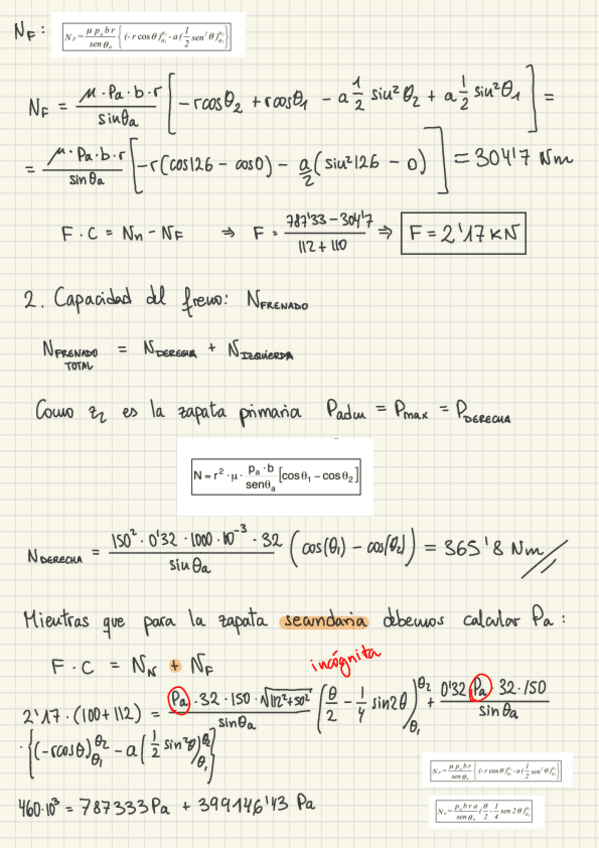 N_F :
N_F = μ p_a b r / sen θ_a { (-r cos θ ∫_θ1^θ2 - a (1/2 sen² θ ∫_θ1^θ2 }
N_F = μ·Pa·b·r / sinθa [ -rcosθ2 + rcosθ1 - a 1/2 sin²θ2 + a 1/2 sin²θ1 ] =
= μ·Pa·b·r / sinθa [ -r(cos126 - cos0) - a/2 (sin²126 - 0) ] = 304'7 Nm
F·C = Nn - NF ⇒ F = 787'33 - 304'7 / 112 + 110 ⇒ F = 2'17 KN
2. Capacidad del freno: N FRENADO
N FRENADO TOTAL = N DERECHA + N IZQUIERDA
Como z2 es la zapata primaria Padm = Pmax = P DERECHA
N = r² · μ · p_a · b / senθ_a [cos θ1 - cos θ2]
N DERECHA = 150² · 0'32 · 1000 · 10⁻³ · 32 / sinθa ( cos(θ1) - cos(θ2) ) = 365'8 Nm
Mientras que para la zapata secundaria debemos calcular Pa:
F·C = N_N + N_F
incógnita
2'17 · (100 + 112) = Pa · 32 · 150 · √112² + 50² / sinθa ( θ/2 - 1/4 sin2θ )_θ1^θ2 + 0'32 Pa · 32 · 150 / sinθa
· { (-rcosθ)_θ1^θ2 - a ( 1/2 sin²θ )_θ1^θ2 }
N_F = μ p_a b r / sen θ_a { (-r cos θ ∫_θ1^θ2 - a (1/2 sen² θ ∫_θ1^θ2 }
460·10³ = 787333 Pa + 399146'43 Pa
N_n = p_a b r a / sen θ_a ( θ/2 - 1/4 sen 2 θ ∫_θ1^θ2